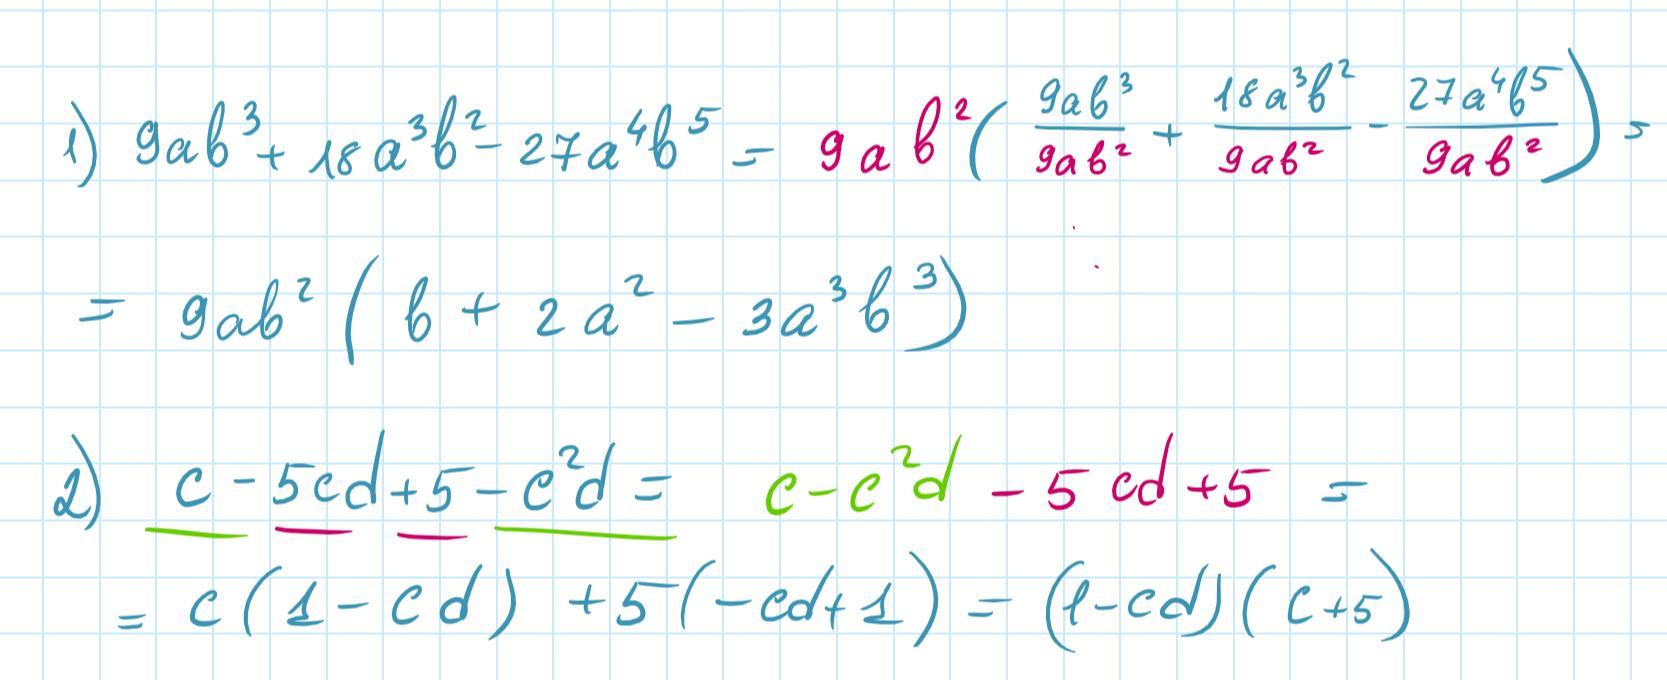 1) 9ab³ + 18a³b² - 27a⁴b⁵ = 9ab² ( 9ab³/9ab² + 18a³b²/9ab² - 27a⁴b⁵/9ab² ) =
= 9ab² ( b + 2a² - 3a³b³ )
2) c - 5cd + 5 - c²d = c - c²d - 5cd + 5 =
= c(1 - cd) + 5(-cd + 1) = (1 - cd)(c + 5)